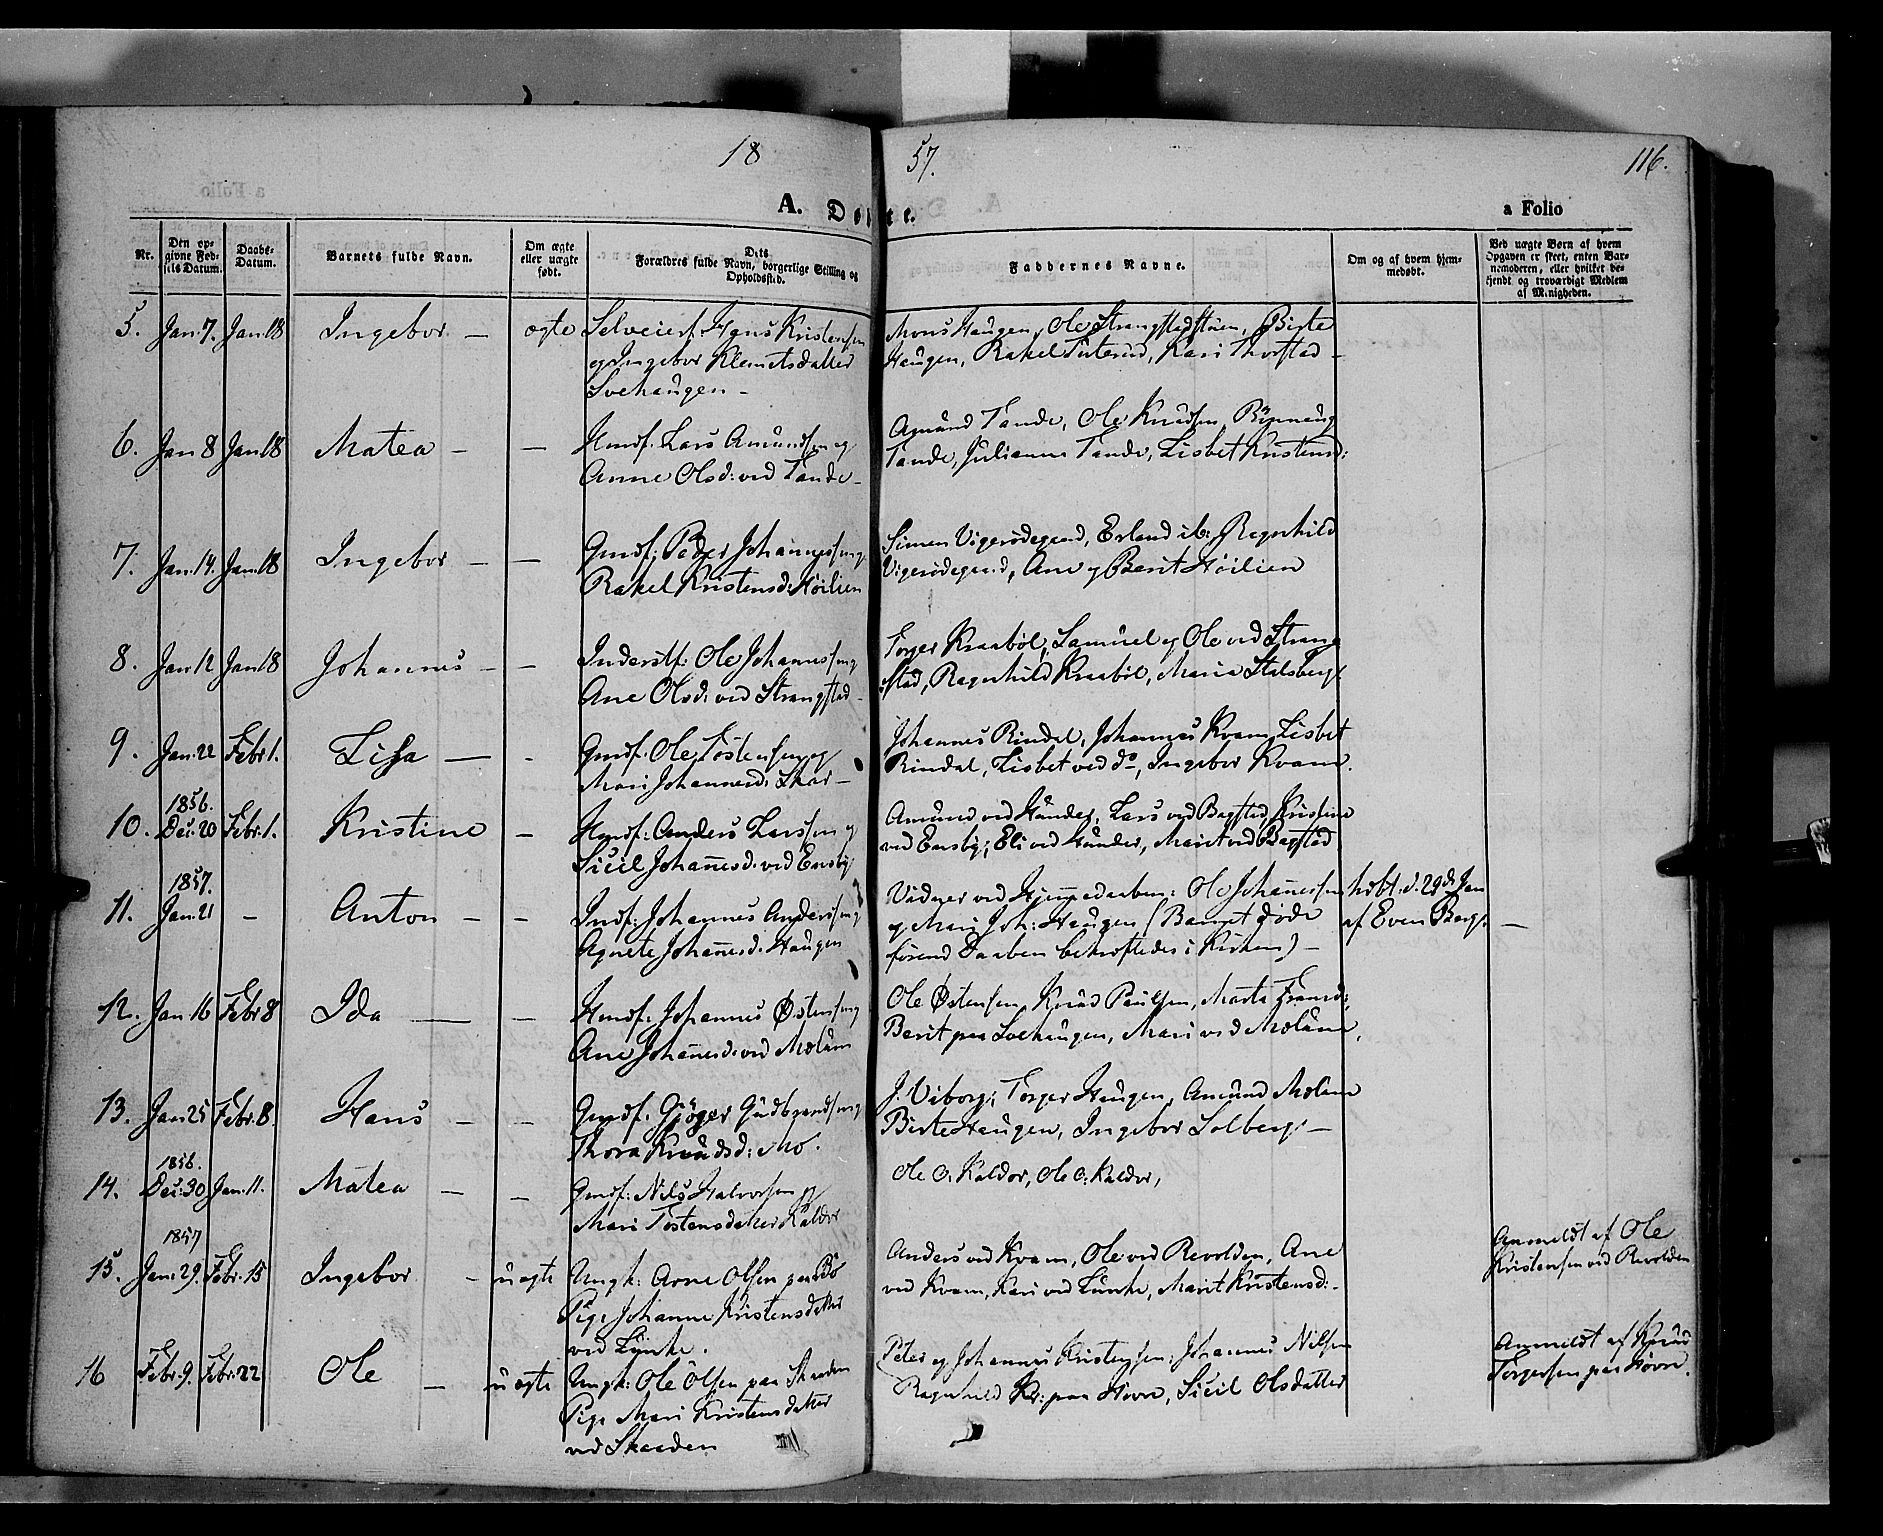 18 57. 116.
A. Døbte. a Folio
Nr. Den opgivne Fødsels Datum. Daabs-Datum. Barnets fulde Navn. Om ægte eller uægte født. Dets Forældres fulde Navn, borgerlige Stilling og Opholdssted. Faddernes Navne. Om og af hvem hjemmedøbt. Ved uægte Børn af hvem Opgaven er skeet, enten Barnemoderen, eller hvilket bekjendt og troværdigt Medlem af Menigheden.
5. Jan. 7. Jan. 18 Ingebor — ægte Selveierf. Hans Kristensen Mons Haugen, Ole Strangstadstuen, Birte
og Ingebor Klemetsdatter Haugen, Rakel Kari Thorstad —
Svehaugen —
6. Jan 8 Jan 18 Matea — — Hmdf. Lars Amundsen og Amund Tande, Ole Knudsen, Rønnaug
Anne Olsd: ved Tande — Tande, Julianne Tande, Lisbet Kristensd:
7. Jan. 14. Jan. 18 Ingebor — — Gmdf: Peder Johannessen og Simen Vigerødegaard, Erland ib: Ragnhild
Rakel Kristensd: Høilien Vigerødegaard, Ane og Berit Høilien
8. Jan 12 Jan 18 Johannes — — Inderstf: Ole Johannessen og Torger Kraabøl, Samuel og Ole ved Strang
Ane Olsd: ved Strangstad — stad, Ragnhild Kraabøl, Maria Stalsberg
9. Jan. 22 Febr 1. Lisa — - Gmdf. Ole Tostensen og Johannes Rindal, Johannes Kvam, Lisbet
Mari Johannesd: Skar — Rindal, Lisbet ved do, Ingebor Kvam.
1856.
10. Dec. 20 Febr. 1. Kristine — Hmdf: Anders Larssen og Amund ved Hunder, Lars ved Bagstad, Kristine
Sicil Johannesd: ved Ensby ved Ensby; Eli ved Hunder, Marit ved Bagstad
1857.
11. Jan. 21 - Anton — — Indf: Johannes Anderssen og Vidner ved Hjemmedaaben: Ole Johannessen høbt: d. 29de Jan
Agnete Johannesd: Haugen og Mari Joh: Haugen (Barnet døde af Even Berg. —
førend Daaben bekræftedes i Kirken) —
12. Jan 16 Febr 8 Ida — — Hmdf: Johannes Østensen og Ole Østensen, Knud Paulsen, Marta Fransd:
Ane Johannesd: ved Molum Berit paa Svehaugen, Mari ved Molum,
13. Jan 25 Febr. 8. Hans — — Gmdf. Gudbrandsen og J. Viborg, Torger Haugen, Amund Molum
Thora Knudsd: Mo. Birte Haugen, Ingebor Solberg: —
1856.
14. Dec: 30 Jan. 11. Matea — — Gmdf: Nils Halvorsen og Ole O: Kaldor, Ole O: Kaldor,
Mari Tostensdatter Kaldor
1857
15. Jan: 29. Febr. 15 Ingebor — uægte Ungk: Arne Olsen paa Bø Anders ved Kvam, Ole ved Revolden, Ane Anmeldt af Ole
Pige Johanne Kristensdatter ved Kvam, Kari ved Lunke, Marit Kristensd: — Kristensen ved Revolden
ved Lunke.
16 Febr. 9. Febr. 22 Ole — uægte Ungk: Ole Olsen paa Skaaden Peter og Johannes Kristensen, Johannes Nilsen Anmeldt af Knud
Pige Mari Kristensdatter Ragnhild Kr: paa Hovre, Sicil Olsdatter Torgersen paa Hovre.
ved Skaaden